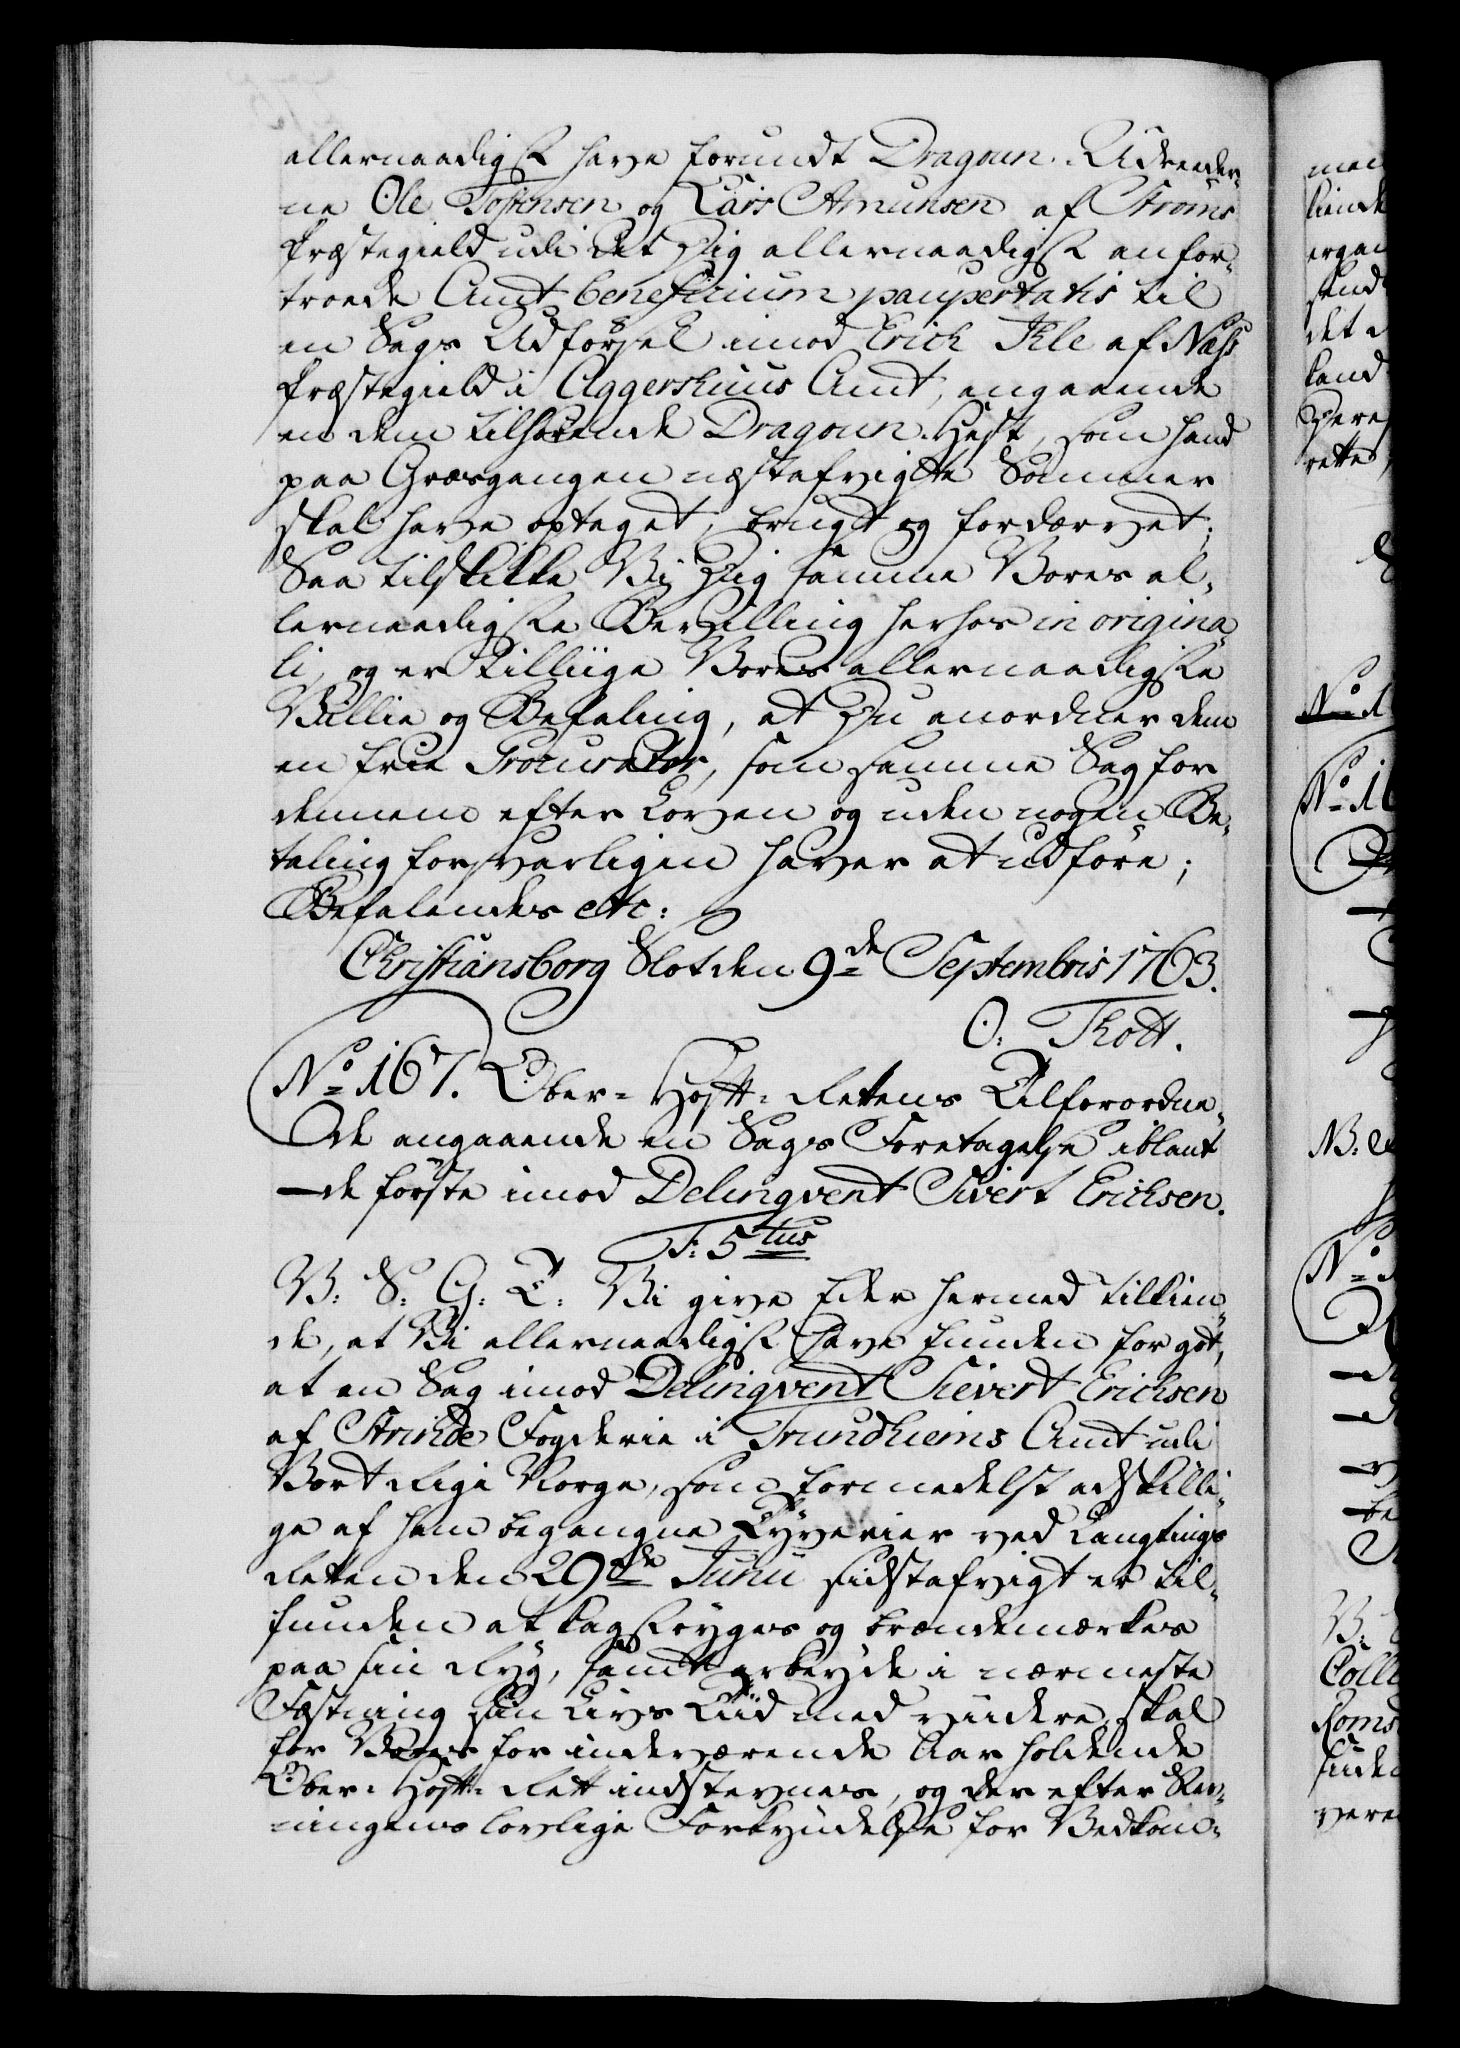 allernaadigst have forundt Dragoun-Udreder-
ne Ole Tostensen og Lars Amunsen af Strøms
Præstegield udi det Dig allernaadigst anfor-
troede Amt beneficium paupertatis til
en Sags Udførsel imod Erich Ihle af Næss
Præstegield i Aggershuus Amt, angaaende
en dem tilhørende Dragoun-Hest, som hand
paa Græsgangen næstafvigte Sommer
skal have optaget, brugt og fordærvet;
Saa tilskikke Vi Dig samme Vores al-
lernaadigste Bevilling herhos in origina-
li, og er tilliige Vores allernaadigste
Villie og Befaling, at Du anordner dem
en frie Procurator, som samme Sag for
dennem efter Loven og uden nogen Be-
taling forsvarligen haver at udføre;
Befalendes etc:
Christiansborg Slot den 9de Septembris 1763.
O. Thott.
No 167. Ober-Hoff-Rettens Tilforordne-
de angaaende en Sags Foretagelse iblant
de første imod Delinqvent Sivert Erichsen.
F: 5tus
V: S: G: T: Vi give Eder hermed tilkien-
de, at Vi allernaadigst have funden for got,
at en Sag imod Delinqvent Sievert Erichsen
af Strinde Fogderie i Trundhiems Amt udi
Vort Rige Norge, som formedelst adskilli-
ge af ham begangne Tyverier ved Laugtings
Retten den 29de Junii sidstafvigt er til-
funden at kagstryges og brændemærkes
paa sin Ryg, samt arbeyde i nærmeste
Fæstning sin Livs Tiid med viidere, skal
for Vores for indeværende Aar holdende
Ober-Hoff-Rett indstevnes, og der efter Stev-
ningens lovlige Forkyndelse for Vedkom-